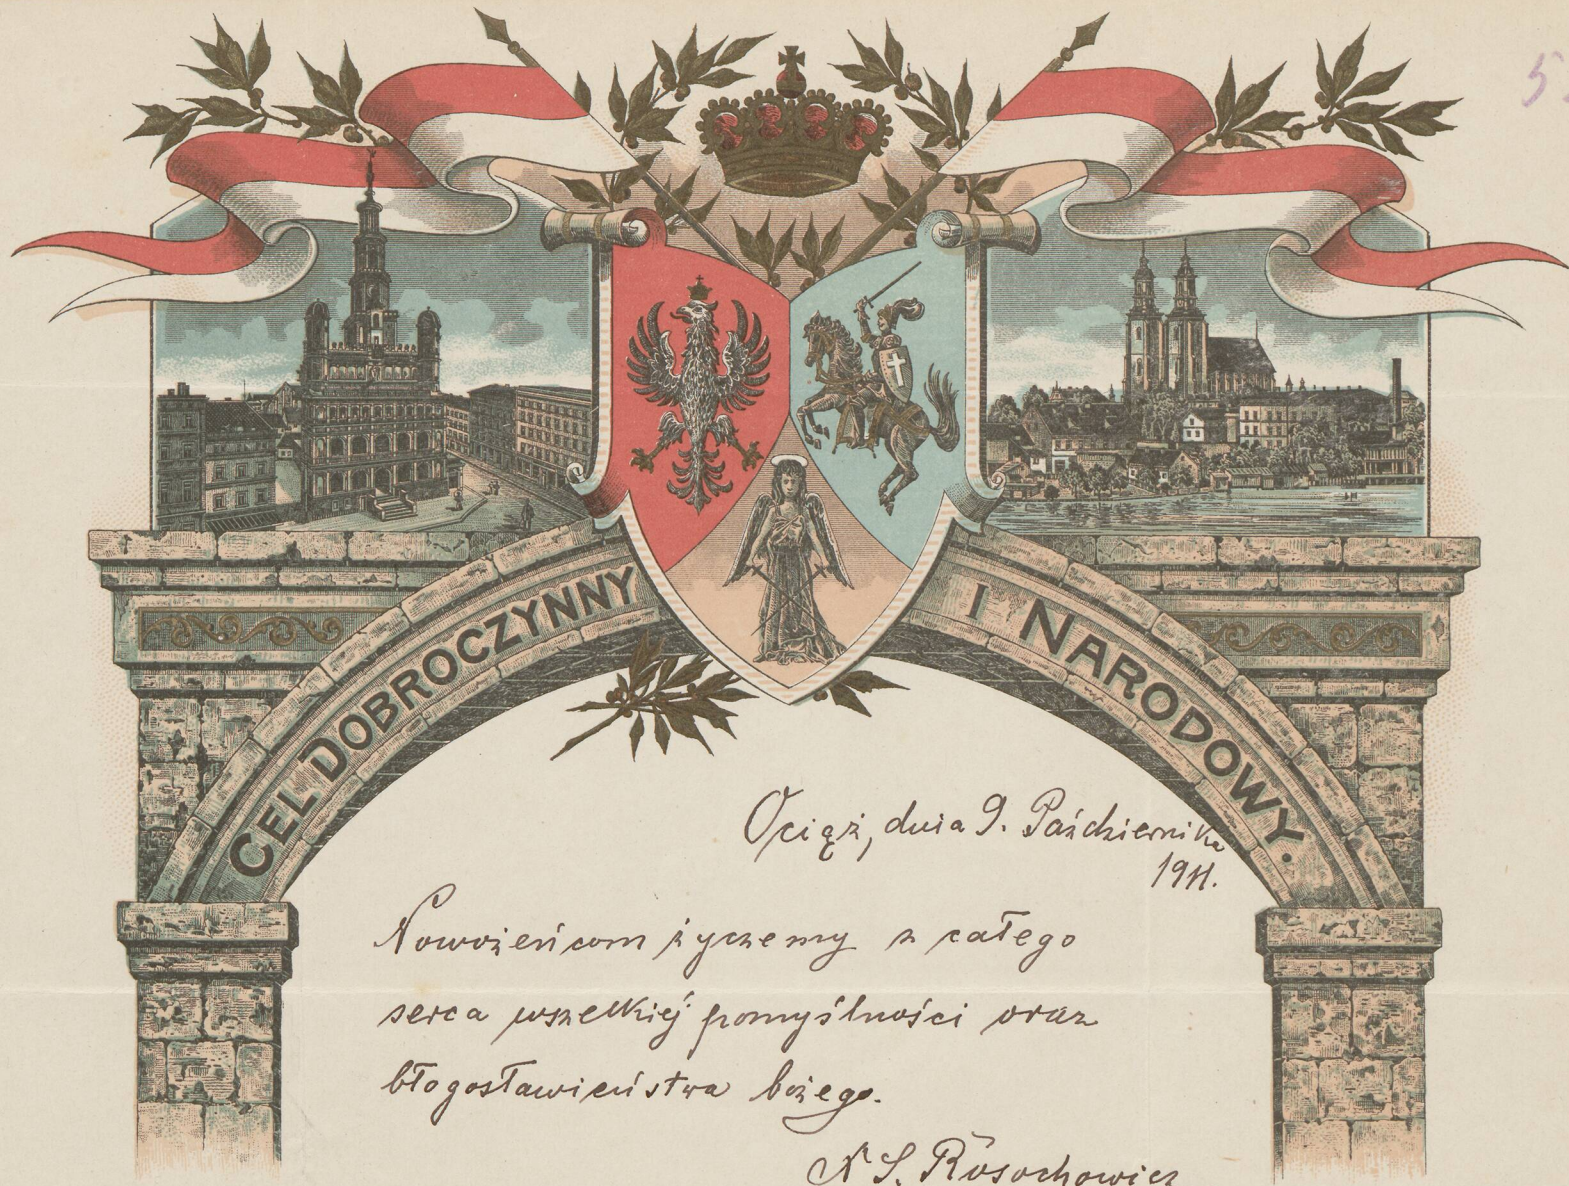 5
CEL DOBROCZYNNY I NARODOWY.
Ociąż, dnia 9. Październik
1911.
Nowożeńcom życzemy z całego
serca wszelkiéj pomyślności oraz
błogosławieństwa bożego.
N S. Rosochowicz